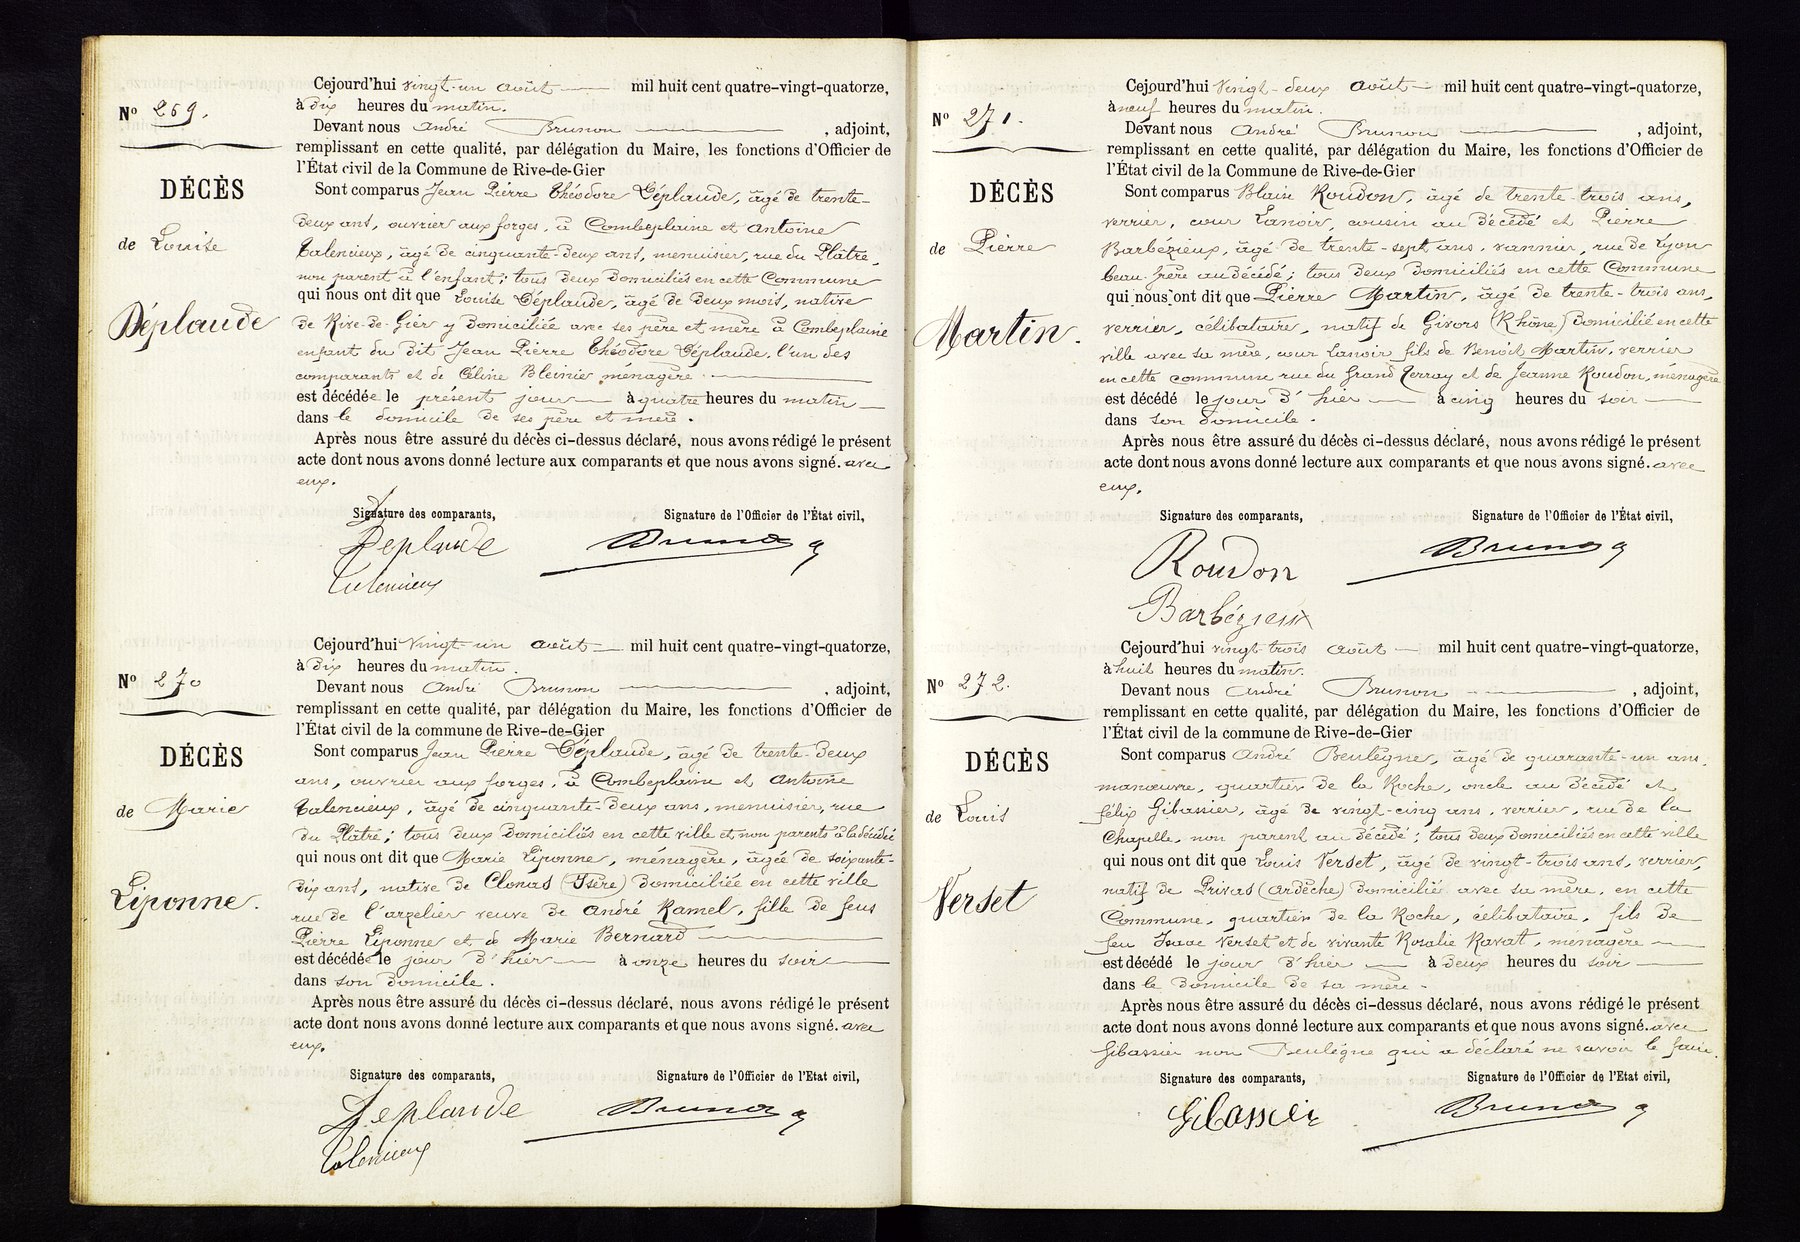 Nº 269.
DÉCÈS
de Louise
Déplaude
Cejourd'hui vingt-un août mil huit cent quatre-vingt-quatorze,
à dix heures du matin.
Devant nous André Brunon , adjoint,
remplissant en cette qualité, par délégation du Maire, les fonctions d'Officier de
l'État civil de la Commune de Rive-de-Gier
Sont comparus Jean Pierre Théodore Déplaude, âgé de trente-
deux ans, ouvrier aux forges, à Combeplaine et Antoine
Talencieux, âgé de cinquante-deux ans, menuisier, rue du Plâtre,
non parent à l'enfant; tous deux domiciliés en cette Commune
qui nous ont dit que Louise Déplaude, âgé de deux mois, native
de Rive-de-Gier y domiciliée avec ses père et mère à Combeplaine
enfant du dit Jean Pierre Théodore Déplaude, l'un des
comparants et de Céline Bleinier ménagère.
est décédée le présent jour à quatre heures du matin
dans le domicile de ses père et mère.
Après nous être assuré du décès ci-dessus déclaré, nous avons rédigé le présent
acte dont nous avons donné lecture aux comparants et que nous avons signé. avec
eux.
Signature des comparants, Signature de l'Officier de l'État civil,
Déplaude Brunon
Talencieux
Nº 270
DÉCÈS
de Marie
Liponne.
Cejourd'hui vingt-un août mil huit cent quatre-vingt-quatorze,
à dix heures du matin.
Devant nous André Brunon , adjoint,
remplissant en cette qualité, par délégation du Maire, les fonctions d'Officier de
l'État civil de la commune de Rive-de-Gier
Sont comparus Jean Pierre Déplaude, âgé de trente-deux
ans, ouvrier aux forges, à Combeplaine et Antoine
Talencieux, âgé de cinquante-deux ans, menuisier, rue
du Plâtre; tous deux domiciliés en cette ville et non parents à la décédée
qui nous ont dit que Marie Liponne, ménagère, âgée de soixante-
dix ans, native de Clonas (Isère) domiciliée en cette ville
rue de l'argelier veuve de André Ramel, fille de feus
Pierre Liponne et de Marie Bernard
est décédée le jour d'hier à onze heures du soir
dans son domicile.
Après nous être assuré du décès ci-dessus déclaré, nous avons rédigé le présent
acte dont nous avons donné lecture aux comparants et que nous avons signé. avec
eux.
Signature des comparants, Signature de l'Officier de l'Etat civil,
Deplaude Brunon
Talencieux
Nº 271.
DÉCÈS
de Pierre
Martin.
Cejourd'hui vingt-deux août mil huit cent quatre-vingt-quatorze,
à neuf heures du matin.
Devant nous André Brunon , adjoint,
remplissant en cette qualité, par délégation du Maire, les fonctions d'Officier de
l'État civil de la Commune de Rive-de-Gier
Sont comparus Blaise Roudon, âgé de trente-trois ans,
verrier, cour Lanoir, cousin au décédé et Pierre
Barbézieux, âgé de trente-sept ans, vannier, rue de Lyon
beau-frère au décédé; tous deux domiciliés en cette Commune
qui nous ont dit que Pierre Martin, âgé de trente-trois ans,
verrier, célibataire, natif de Givors (Rhône) domicilié en cette
ville avec sa mère, cour Lanoir fils de Benoit Martin, verrier
en cette commune rue du Grand Terray et de Jeanne Roudon, ménagère
est décédé le jour d'hier à cinq heures du soir
dans son domicile.
Après nous être assuré du décès ci-dessus déclaré, nous avons rédigé le présent
acte dont nous avons donné lecture aux comparants et que nous avons signé. avec
eux.
Signature des comparants, Signature de l'Officier de l'État civil,
Roudon Brunon
Barbézieux
Nº 272.
DÉCÈS
de Louis
Verset
Cejourd'hui vingt-trois août mil huit cent quatre-vingt-quatorze,
à huit heures du matin.
Devant nous André Brunon , adjoint,
remplissant en cette qualité, par délégation du Maire, les fonctions d'Officier de
l'État civil de la commune de Rive-de-Gier
Sont comparus André Beulègne, âgé de quarante-un ans,
manœuvre, quartier de la Roche, oncle au décédé et
félix Gibassier, âgé de vingt-cinq ans, verrier, rue de la
Chapelle, non parent au décédé; tous deux domiciliés en cette ville
qui nous ont dit que Louis Verset, âgé de vingt-trois ans, verrier,
natif de Privas (Ardèche) domicilié avec sa mère, en cette
Commune, quartier de la Roche, célibataire, fils de
feu Isaac Verset et de vivante Rosalie Ravat, ménagère
est décédé le jour d'hier à deux heures du soir
dans le domicile de sa mère.
Après nous être assuré du décès ci-dessus déclaré, nous avons rédigé le présent
acte dont nous avons donné lecture aux comparants et que nous avons signé. avec
Gibassier non Beulègne qui a déclaré ne savoir le faire.
Signature des comparants, Signature de l'Officier de l'Etat civil,
Gibassier Brunon